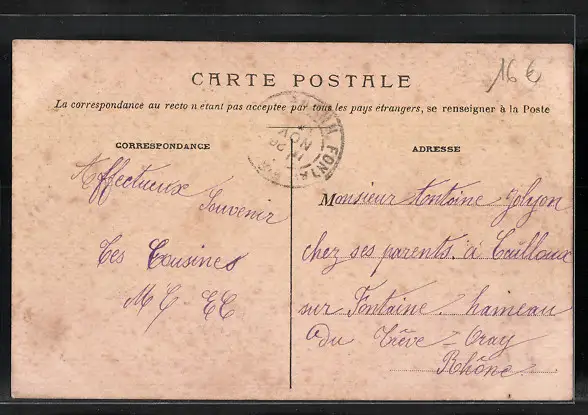 16 €
CARTE POSTALE
La correspondance au recto n étant pas acceptée par tous les pays étrangers, se renseigner à la Poste
CORRESPONDANCE
ADRESSE
NOV
FONTA
Affectueux
Souvenir
Tes Cousines
M C EC
Monsieur Antoine Jolyon
chez ses parents. à Cailloux
sur Fontaine. hameau
du Trêve - Oray
Rhône.